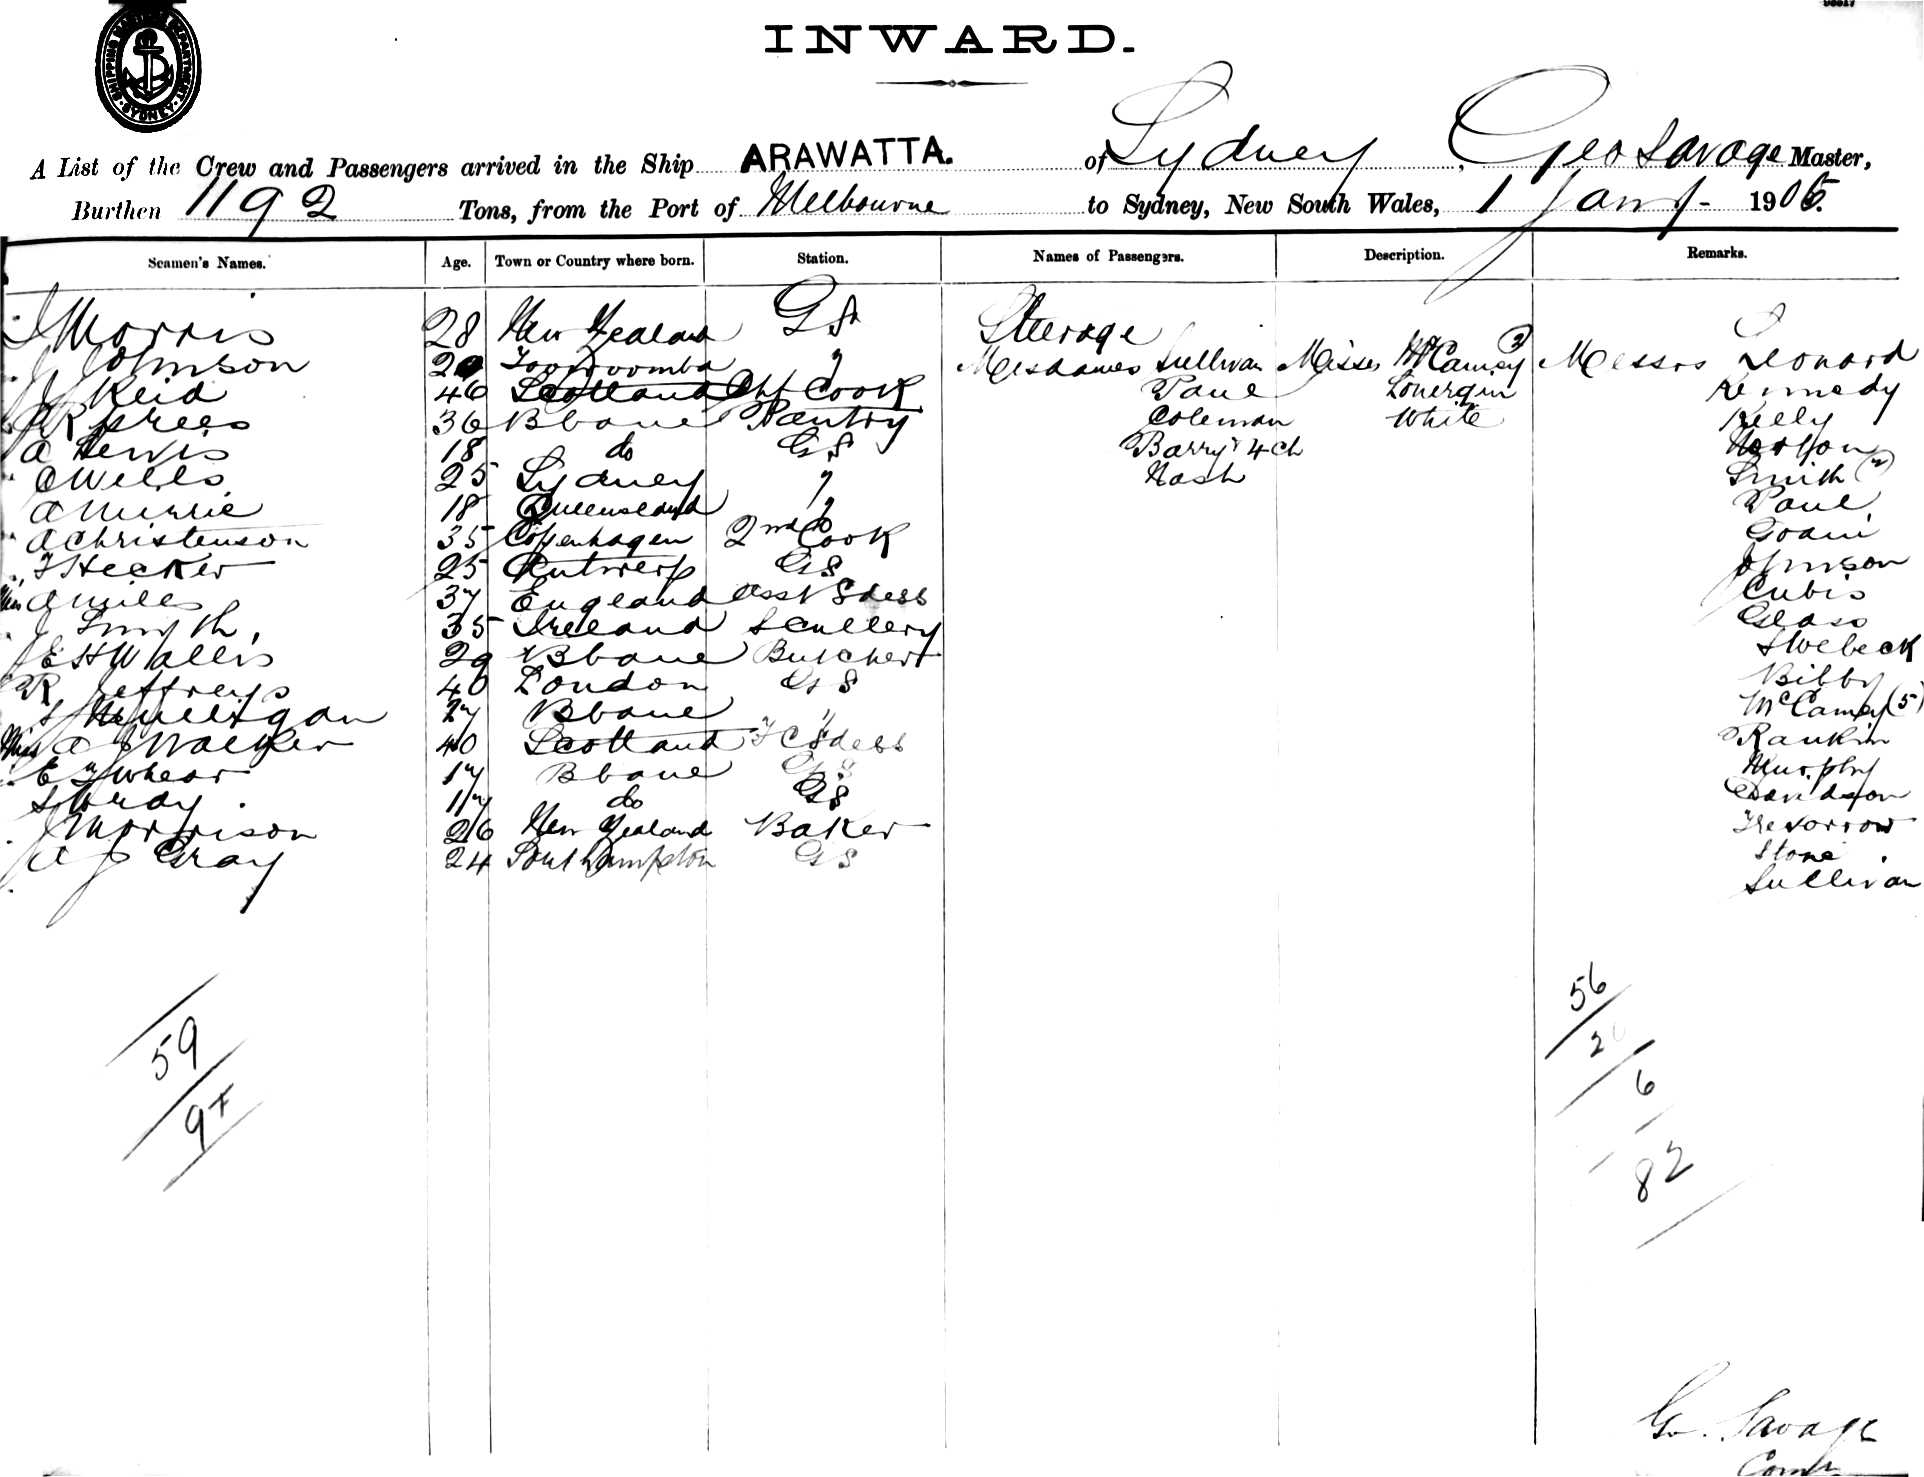 SHIPPING MASTER'S DEPARTMENT SYDNEY
INWARD.
A List of the Crew and Passengers arrived in the Ship ARAWATTA. of Sydney, Geo Savage Master,
Burthen 1192 Tons, from the Port of Melbourne to Sydney, New South Wales, 1 Jany 1905.
Seamen's Names. Age. Town or Country where born. Station. Names of Passengers. Description. Remarks.
J Morris 28 New Zealand GS Steerage
J Johnson 20 Toowoomba " Mesdames Sullivan Misses McCamey (2) Messrs Leonard
J Reid 46 Scotland Chf Cook Paul Lonergan Kennedy
R Prees 36 Bbane Pantry Coleman White Kelly
A Lewis 18 do GS Barry & 4 ch Norton
C Wells 25 Sydney " Nash Smith (2)
A Murrie 18 Queensland " Paul
A Christenson 35 Copenhagen 2nd Cook
F Hecker 25 Antwerp GS Johnson
Miss A Miles 37 England Asst Sdess Cubis
J Smyth 35 Ireland Scullery Glass
E H Wallis 29 Bbane Butcher
R Jeffreys 40 London GS Bibby
S Mulligan 27 Bbane " McCamey (5)
Miss A J Walker 40 Scotland F C Sdess Rankin
E F Whear 17 Bbane GS Murphy
S Wray 17 do GS Davidson
J Morrison 26 New Zealand Baker Tresorrow
A J Gray 24 Southampton GS Stone
Sullivan
56
59 20
9+ 6
82
Geo. Savage
Comdr